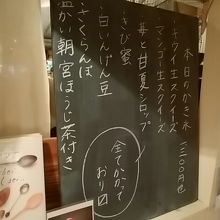 本日のかき氷
一三〇〇円也
キウイ生スクイーズ
マンゴー生スクイーズ
苺と甘夏シロップ
きび蜜
白いんげん豆
さくらんぼ
温かい朝宮ほうじ茶付き
全てかかって
おり〼